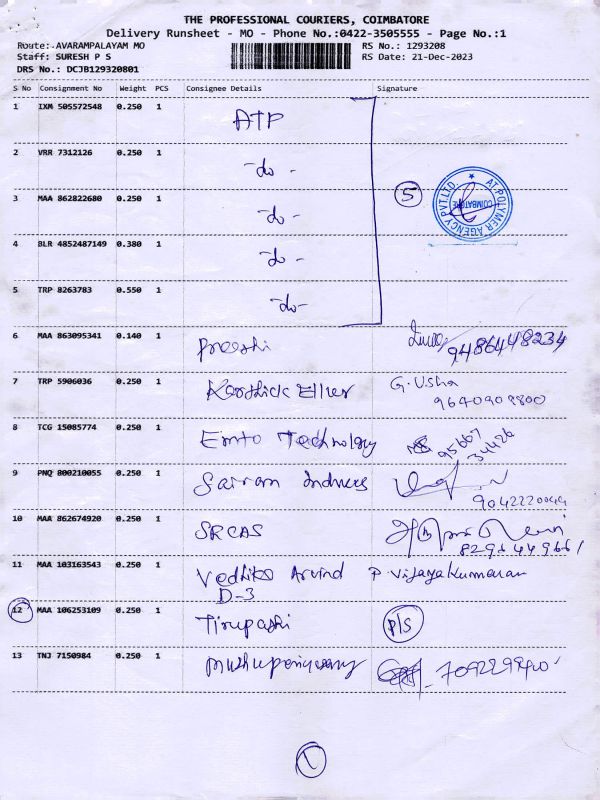 THE PROFESSIONAL COURIERS, COIMBATORE
Delivery Runsheet - MO - Phone No.:0422-3505555 - Page No.:1
Route: AVARAMPALAYAM MO
RS No.: 1293208
Staff: SURESH P S
RS Date: 21-Dec-2023
DRS No.: DCJB129320801
S No Consignment No Weight PCS Consignee Details Signature
1 IXM 505572548 0.250 1 ATP
2 VRR 7312126 0.250 1 -do-
3 MAA 862822680 0.250 1 -do- 5
AT POLYMER AGENCY PVT.LTD. COIMBATORE
4 BLR 4852487149 0.380 1 -do-
5 TRP 8263783 0.550 1 -do-
6 MAA 863095341 0.140 1 Preethi 9486448234
7 TRP 5906036 0.250 1 Karthick G. Usha
9640909800
8 TCG 15085774 0.250 1 Emto Technology 95667
34426
9 PNQ 800210055 0.250 1 Sairam
10 MAA 862674920 0.250 1 SRCAS
11 MAA 103163543 0.250 1 Vedhika Arvind P. Vijayakumaran
D-3
12 MAA 106253109 0.250 1 Tirupathi P/S
13 TNJ 7150984 0.250 1
1